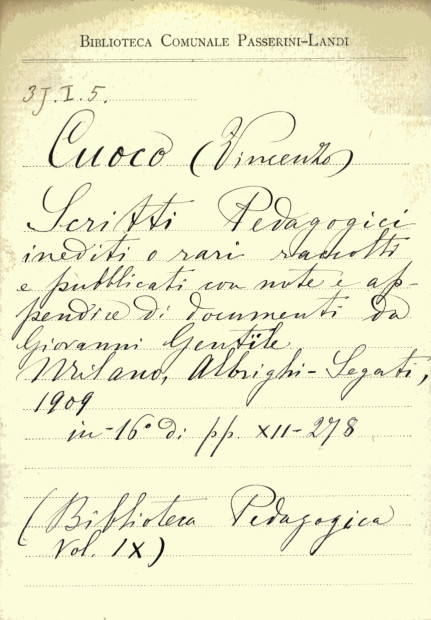 BIBLIOTECA COMUNALE PASSERINI-LANDI
3J.I.5.
Cuoco (Vincenzo)
Scritti Pedagogici
inediti o rari raccolti
e pubblicati con note e ap-
pendice di documenti da
Giovanni Gentile
Milano, Albrighi-Segati,
1909
in-16° di pp. XII-278
(Biblioteca Pedagogica
Vol. IX)